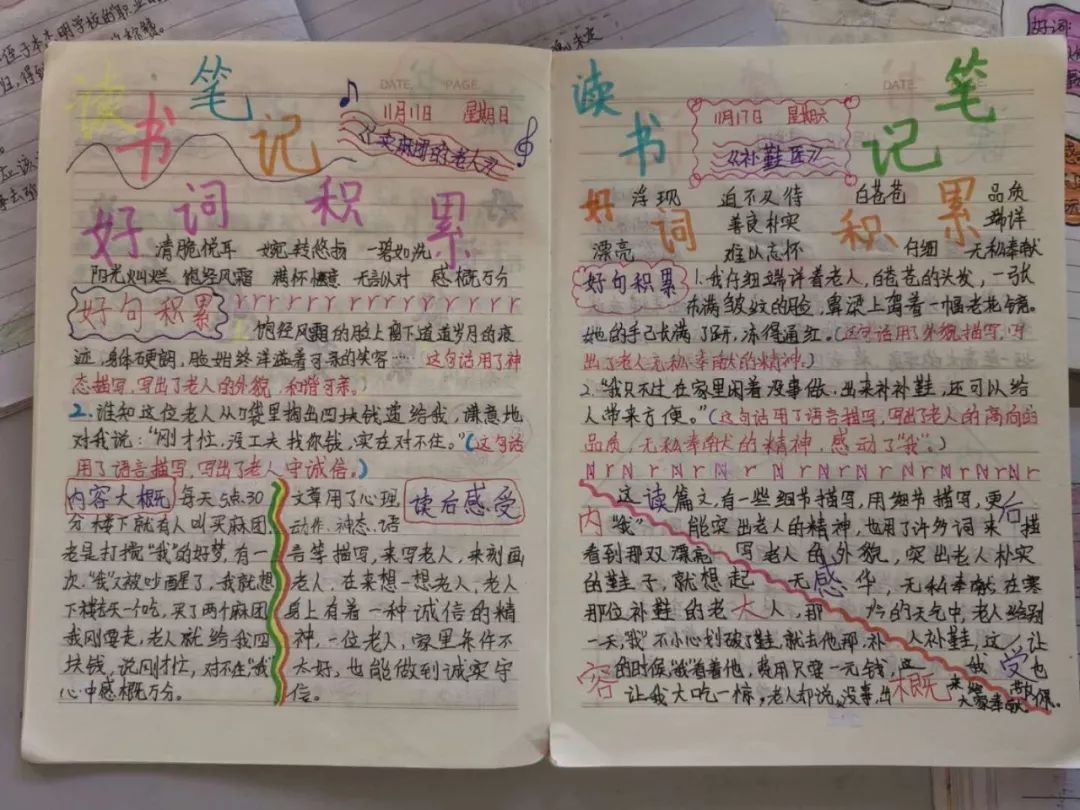 读书笔记
DATE. PAGE.
11月11日 星期日
《卖麻团的老人》
好词积累
清脆悦耳 婉转悠扬 一碧如洗
阳光灿烂 饱经风霜 满怀惬意 无言以对 感概万分
好句积累
饱经风霜的脸上留下道道岁月的痕
迹,身体硬朗,脸始终洋溢着可亲的笑容……(这句话用了神
态描写,写出了老人的外貌,和蔼可亲。)
2.谁知这位老人从口袋里掏出四块钱递给我,谦意地
对我说:“刚才忙,没工夫找你钱,实在对不住。”(这句话
用了语言描写,写出了老人中诚信。)
内容大概
每天5点30
分楼下就有人叫买麻团,
老是打搅“我”的好梦,有一
次,“我”又被吵醒了,我就想
下楼去买一个吃,买了两个麻团
我刚要走,老人就给我四
块钱,说刚才忙,对不住,“我”
心中感概万分。
读后感受
文章用了心理
动作、神态、语
言等描写,来写老人,来刻画
老人,在来想一想老人,老人
身上有着一种诚信的精
神,一位老人,家里条件不
太好,也能做到诚实守
信。
读书笔记
DATE.
11月17日 星期六
《补鞋匠》
好词积累
浮现 迫不及待 白苍苍 品质
善良朴实 端详
漂亮 难以忘怀 仔细 无私奉献
好句积累
1.我仔细端详着老人,白苍苍的头发,一张
布满皱纹的脸,鼻梁上驾着一幅老花镜。
她的手已长满了茧,冻得通红。(这句话用了外貌描写,写
出了老人无私奉献的精神。)
2.“我只不过在家里闲着没事做,出来补补鞋,还可以给
人带来方便。”(这句话用了语言描写,写出了老人的高尚的
品质,无私奉献的精神,感动了“我”。)
内容大概
“我”
看到那双漂亮
的鞋子,就想起
那位补鞋的老人,那
一天,“我”不小心划破了鞋,就去他那补
的时候,“我”看着他,费用只要一元钱,
让我大吃一惊,老人却说,没事,出
读后感受
这篇文,有一些细节描写,用细节描写,更
能突出老人的精神,也用了许多词来描
写老人的外貌,突出老人朴实
无华,无私奉献,在寒
冷的天气中,老人给别
人补鞋,这让
我也